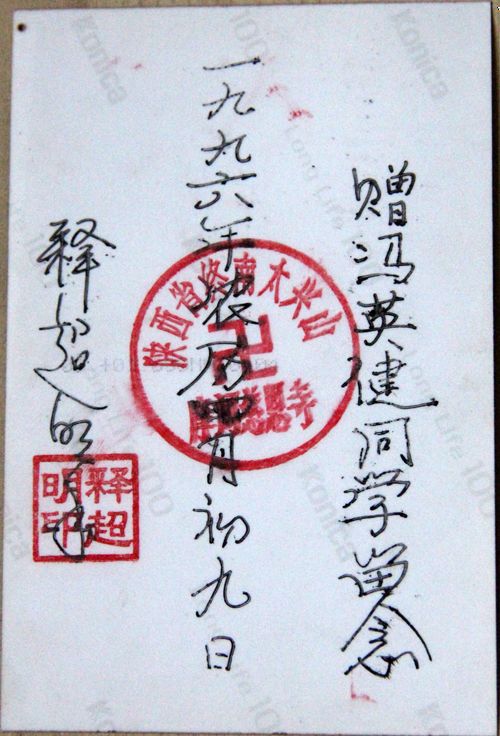 赠冯英健同学留念
一九九六年农历四月初九日
释超明
陕西省南山
卍
寺
释超明印
Konica
Long Life 100
Konica
Long Life 100
Konica